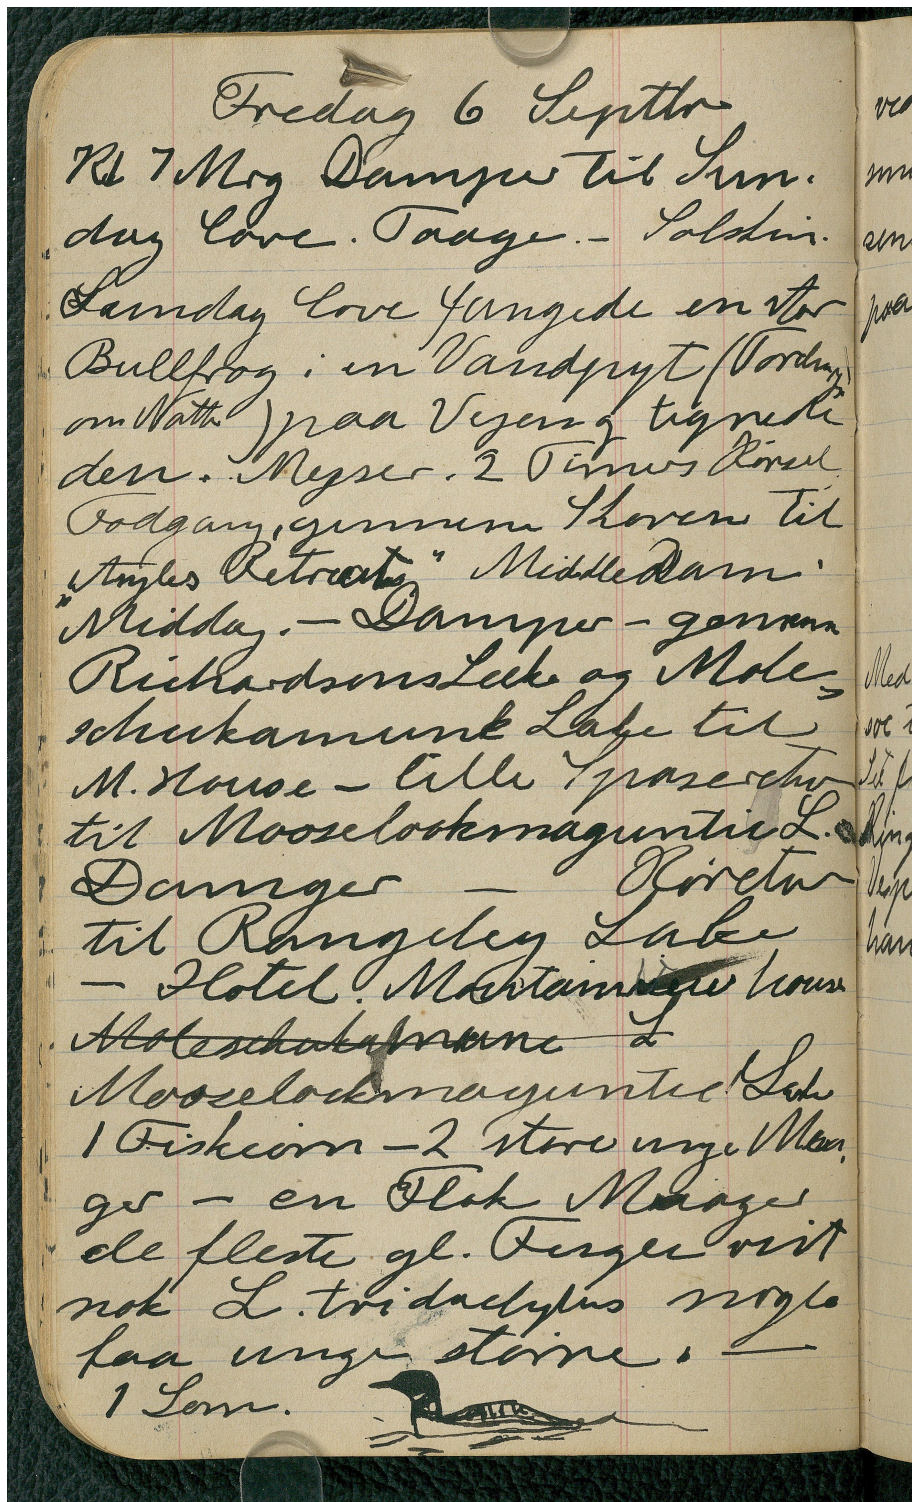 Fredag 6 Septbr
Kl 7 Mrg Damper til Sun-
day Cove. Taage. – Solskin.
Sunday Cove fangede en stor
Bullfrog i en Vandpyt (Torden
om Natten) paa Vejen og tegnede
den. Mejser. 2 Timers Kørsel
Fodgang, gennem Skoven til
"Angles Retreat" Middle Dam.
"Middag. – Damper – gennem
Richardsons Lake og Mole-
schukamunk Lake til
M. House – lille Spaseretur
til Mooselookmaguntic L.
Damper – Køretur
til Rangeley Lake
– Hotel. Mountainview house
Moleschukamunc L
Mooselockmaguntic Lake
1 Fiskeørn – 2 store unge Maa-
ger – en Flok Maager
de fleste gl. Fugle vist
nok L. tridactylus nogle
faa unge større. —
1 Lom.
ved
sen
paa
Med